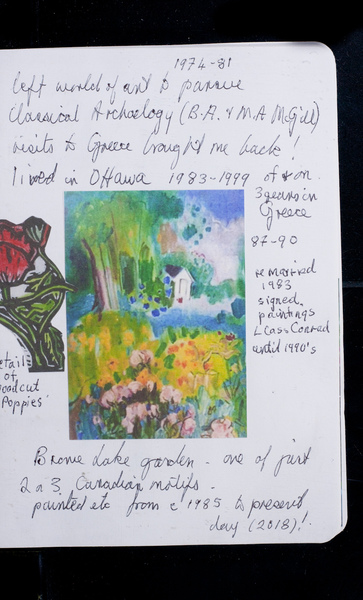 1974-81
left world of art to pursue
Classical Archaeology (B.A. & M.A McGill)
visits to Greece brought me back!
lived in Ottawa 1983-1999 of & on.
3 years in
Greece
87-90
remarried
1983
signed
paintings
L Cass Conrad
until 1990's
etails
of
oodcut
Poppies'
Brome Lake garden - one of just
2 or 3 Canadian motifs -
painted etc from c 1985 to present
day (2018)!